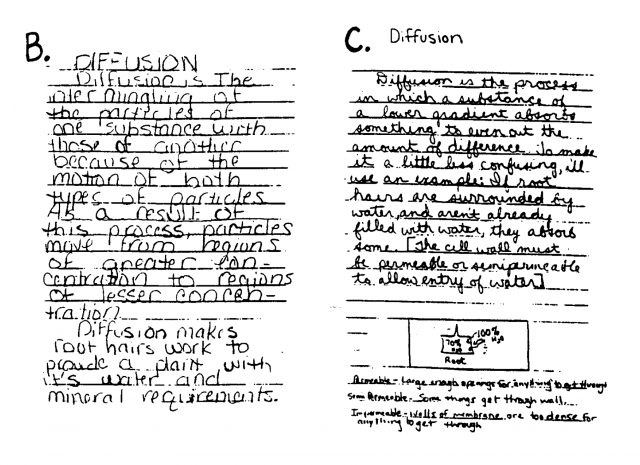 B.
DIFFUSION
Diffusion is The
intermingling of
the particles of
one substance with
those of another
because of the
motion of both
types of particles
As a result of
this process, particles
move from regions
of greater con-
centration to regions
of lesser concen-
tration
Diffusion makes
root hairs work to
provide a plant with
it's water and
mineral requirements.
C.
Diffusion
Diffusion is the process
in which a substance of
a lower gradient absorbs
something to even out the
amount of difference. To make
it a little less confusing, ill
use an example: If root
hairs are surrounded by
water, and aren't already
filled with water, they absorb
some. [The cell wall must
be permeable or semipermeable
to allow entry of water]
100%
H2O
70%
Root
Permeable - Large enough openings for anything to get through
Semi Permeable - Some things get through wall.
Impermeable - Walls of membrane are too dense for
anything to get through